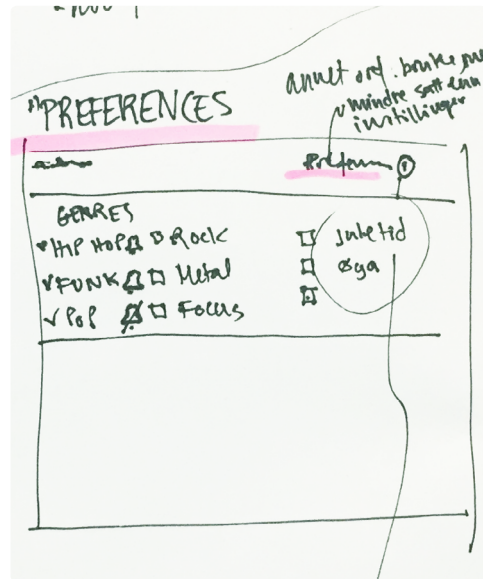 "PREFERENCES
annet ord. bruke
mindre satt enn
instillinger
GENRES
HIP HOP Rock
FUNK Metal
POP Focus
Juletid